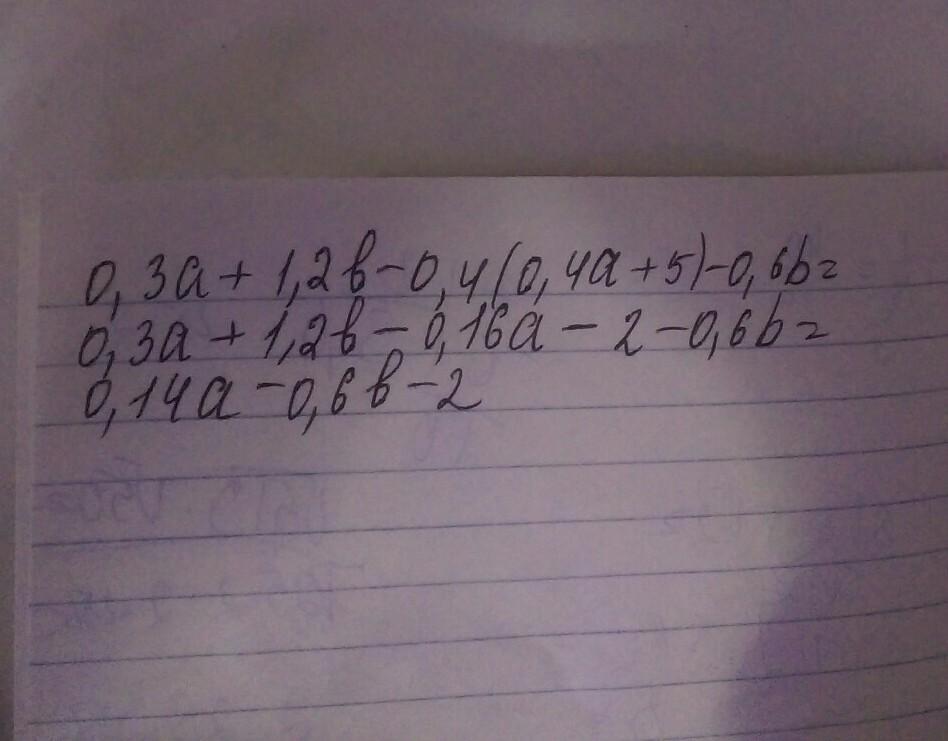 0,3a + 1,2b - 0,4(0,4a + 5) - 0,6b =
0,3a + 1,2b - 0,16a - 2 - 0,6b =
0,14a - 0,6b - 2